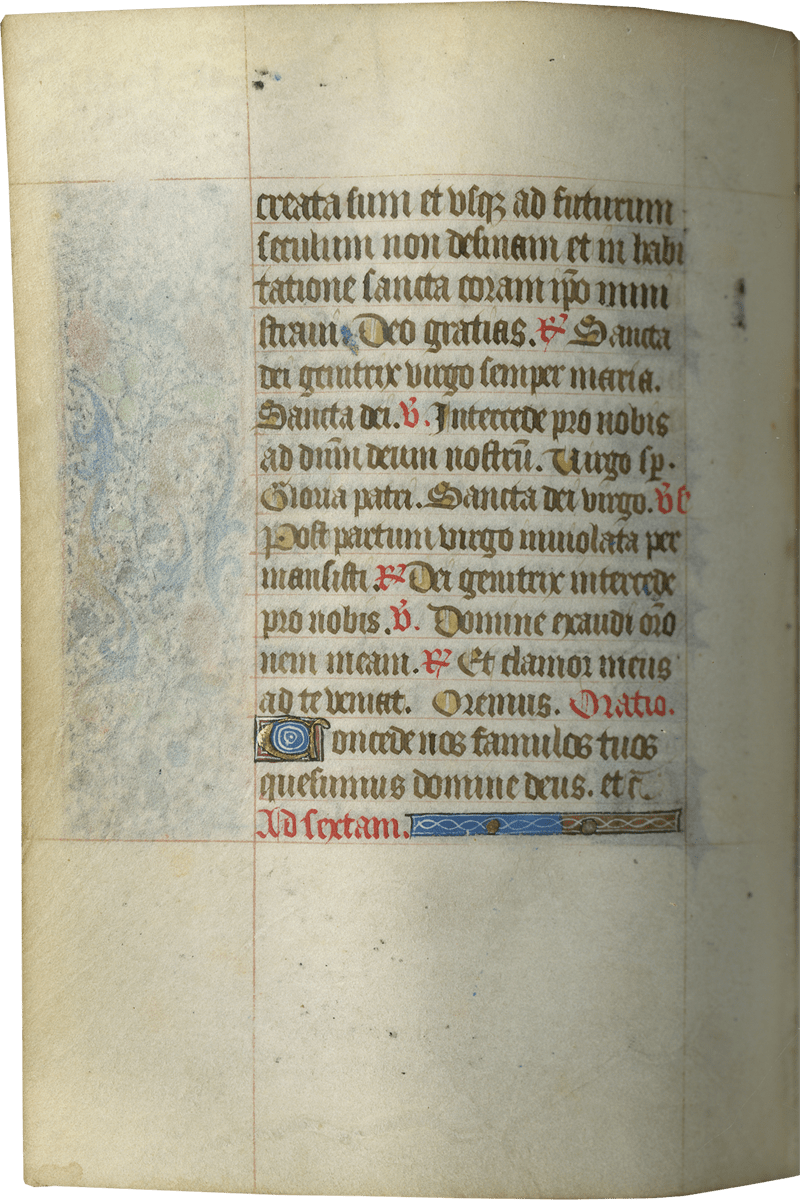 creata sum et vsqꝫ ad futurum
seculum non desinam et in habi
tatione sancta coram ip̄o mini
straui. Deo gratias. ℟ Sancta
dei genitrix virgo semper maria.
Sancta dei. ℣. Intercede pro nobis
ad dn̄m deum nostrū. Virgo sp̄.
Gloria patri. Sancta dei virgo. ℣s
Post partum virgo inuiolata per
mansisti. ℟ Dei genitrix intercede
pro nobis. ℣. Domine exaudi or̄o
nem meam. ℟ Et clamor meus
ad te veniat. Oremus. Oratio.
Concede nos famulos tuos
quesumus domine deus. et c̄.
Ad sextam.